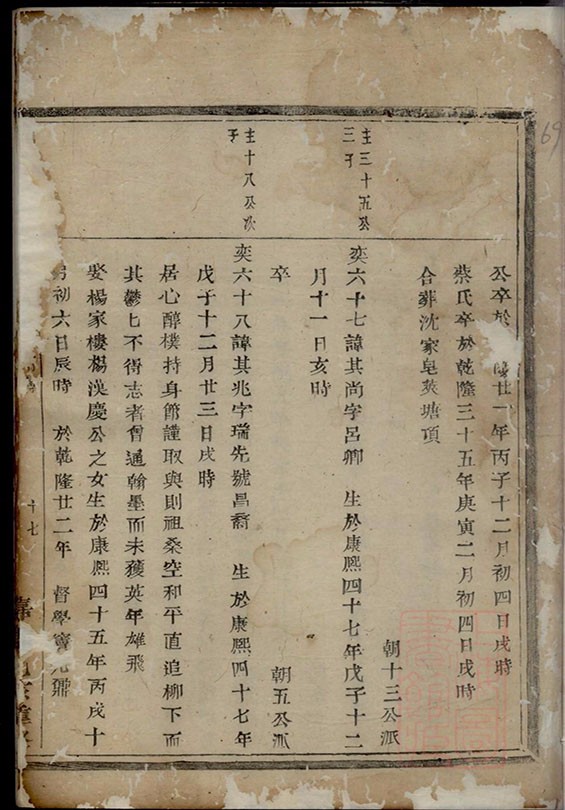 69
公卒於隆廿一年丙子十二月初四日戌時
蔡氏卒於乾隆三十五年庚寅二月初四日戌時
合葬沈家皂莢塘頂
朝十三公派
主三十五公
三子
奕六十七諱其尚字呂卿 生於康熙四十七年戊子十二
月十一日亥時
卒
朝五公派
主十八公次
子
奕六十八諱其兆字瑞先號昌裔 生於康熙四十七年
戊子十二月廿三日戌時
居心醇樸持身節謹取與則祖桑空和平直追柳下而
其鬱匕不得志者曾通翰墨而未獲英年雄飛
娶楊家樓楊漢慶公之女生於康熙四十五年丙戌十
月初六日辰時 於乾隆廿二年 督學竇
十七